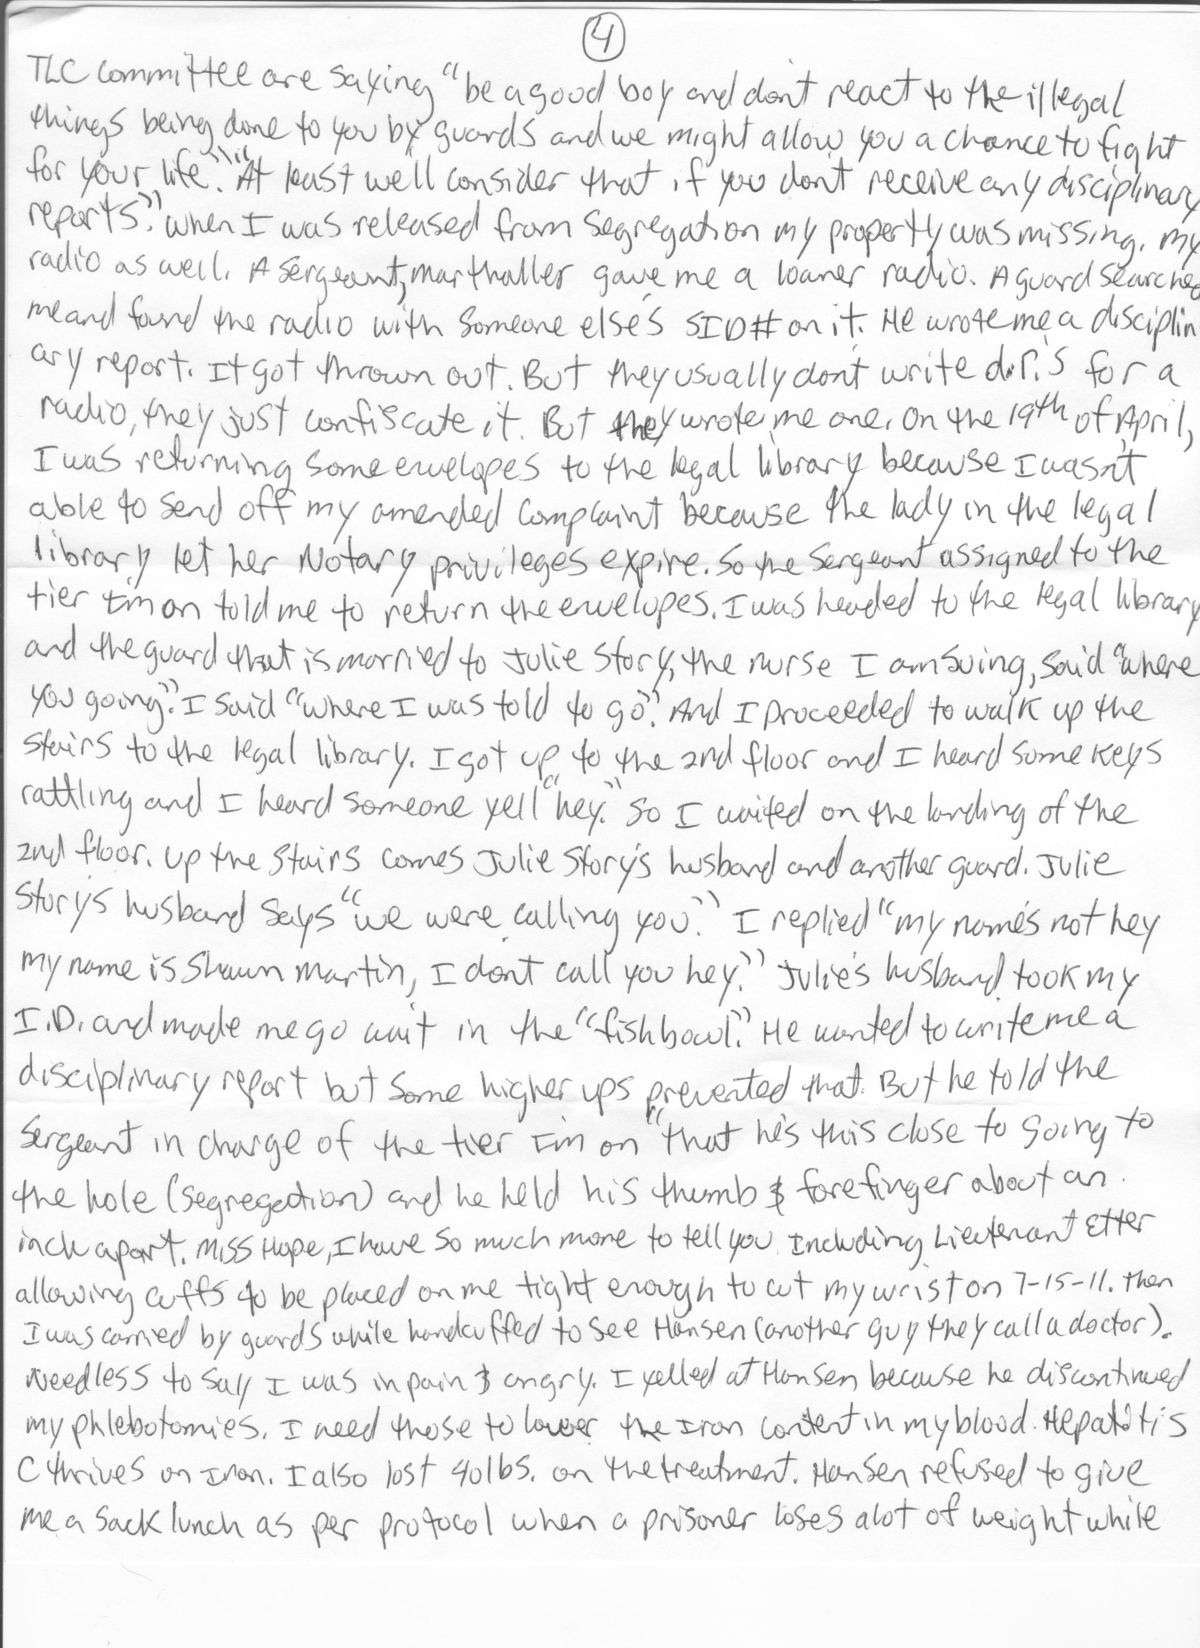 4
TLC committee are saying "be a good boy and don't react to the illegal
things being done to you by guards and we might allow you a chance to fight
for your life." "At least we'll consider that if you don't receive any disciplinary
reports." When I was released from segregation my property was missing. My
radio as well. A Sergeant, Marthaller gave me a loaner radio. A guard searched
me and found the radio with someone else's SID# on it. He wrote me a disciplin
ary report. It got thrown out. But they usually don't write d.r.'s for a
radio, they just confiscate it. But they wrote me one. On the 19th of April,
I was returning some envelopes to the legal library because I wasn't
able to send off my amended complaint because the lady in the legal
library let her Notary privileges expire. So the Sergeant assigned to the
tier I'm on told me to return the envelopes. I was headed to the legal library
and the guard that is married to Julie Story, the nurse I am suing, said "where
you going?" I said "where I was told to go." And I proceeded to walk up the
stairs to the legal library. I got up to the 2nd floor and I heard some keys
rattling and I heard someone yell "hey." So I waited on the landing of the
2nd floor. Up the stairs comes Julie Story's husband and another guard. Julie
Story's husband says "we were calling you." I replied "my name's not hey
my name is Shawn Martin, I don't call you hey." Julie's husband took my
I.D. and made me go wait in the "fishbowl." He wanted to write me a
disciplinary report but some higher ups prevented that. But he told the
Sergeant in charge of the tier I'm on "that he's this close to going to
the hole (segregation) and he held his thumb & forefinger about an
inch apart. Miss Hope, I have so much more to tell you. Including Lieutenant Etter
allowing cuffs to be placed on me tight enough to cut my wrist on 7-15-11. Then
I was carried by guards while handcuffed to see Hansen (another guy they call a doctor).
Needless to say I was in pain & angry. I yelled at Hansen because he discontinued
my phlebotomies. I need those to lower the Iron content in my blood. Hepatitis
C thrives on Iron. I also lost 40lbs. on the treatment. Hansen refused to give
me a sack lunch as per protocol when a prisoner loses alot of weight while